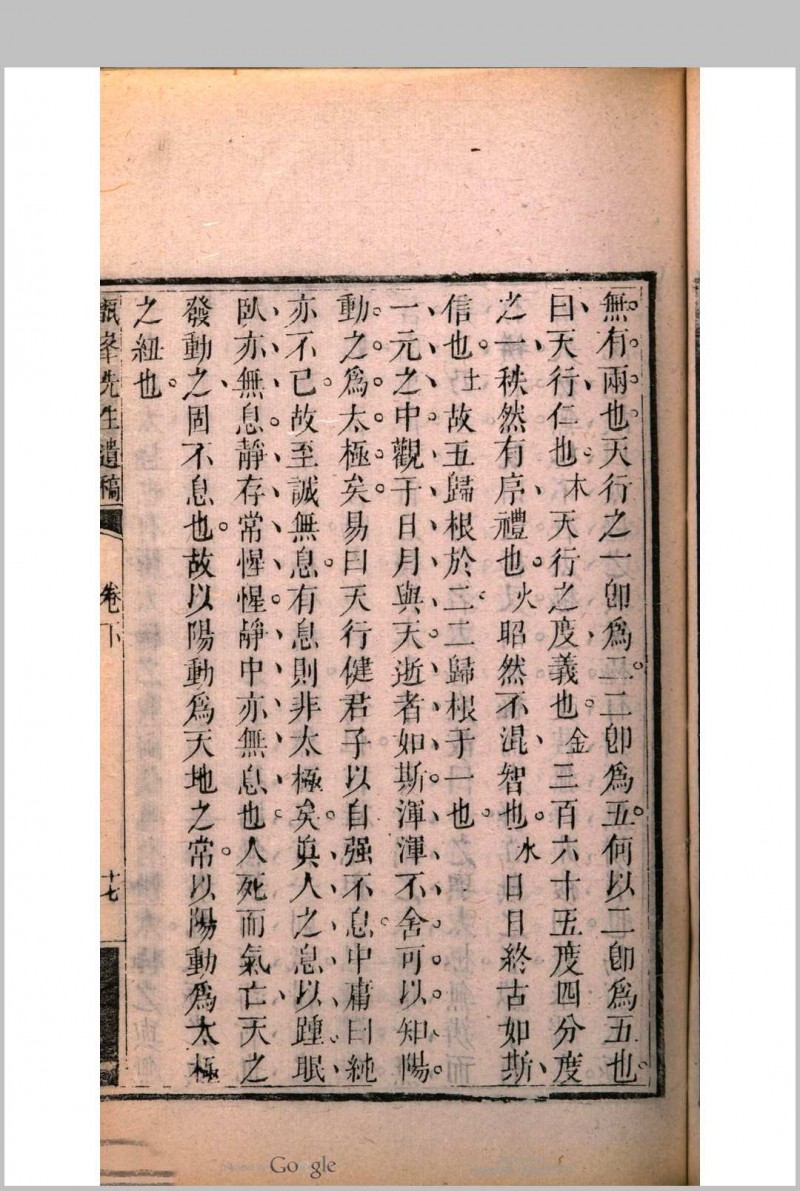 無有兩也天行之一卽爲二二卽爲五何以二卽爲五也
曰天行仁也木天行之度義也金三百六十五度四分度
之一秩然有序禮也火昭然不混智也水日日終古如斯
信也土故五歸根於二二歸根于一也
一元之中觀于日月與天逝者如斯渾渾不舍可以知陽
動之爲太極矣易曰天行健君子以自强不息中庸曰純
亦不已故至誠無息有息則非太極矣眞人之息以踵眠
臥亦無息靜存常惺惺靜中亦無息也人死而氣亡天之
發動之固不息也故以陽動爲天地之常以陽動爲太極
之紐也
峯先生遺稿
卷下
十七
Google